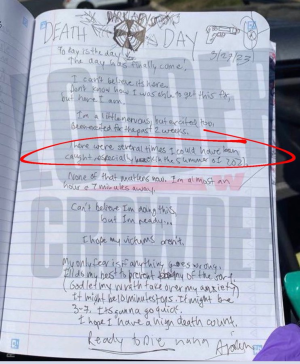 DARK ABYSS
DEATH DAY
3/27/23
Today is the day
The day has finally come!
I can't believe its here.
Don't know how I was able to get this far,
but here I am.
Im a little nervous, but excited too.
Been excited for the past 2 weeks.
There were several times I could have been
caught especially back in the summer of 2021.
None of that matters now. I'm almost an
hour & 7 minutes away.
Can't believe I'm doing this,
but I'm ready...
I hope my victims aren't.
My only fear is if anything goes wrong.
I'll do my best to prevent any of the sort.
(God let my wrath take over my anxiety)
It might be 10 minutes tops. It might be
3-7. It's gunna go quick.
I hope I have a high death count.
Ready to die haha
Aiden